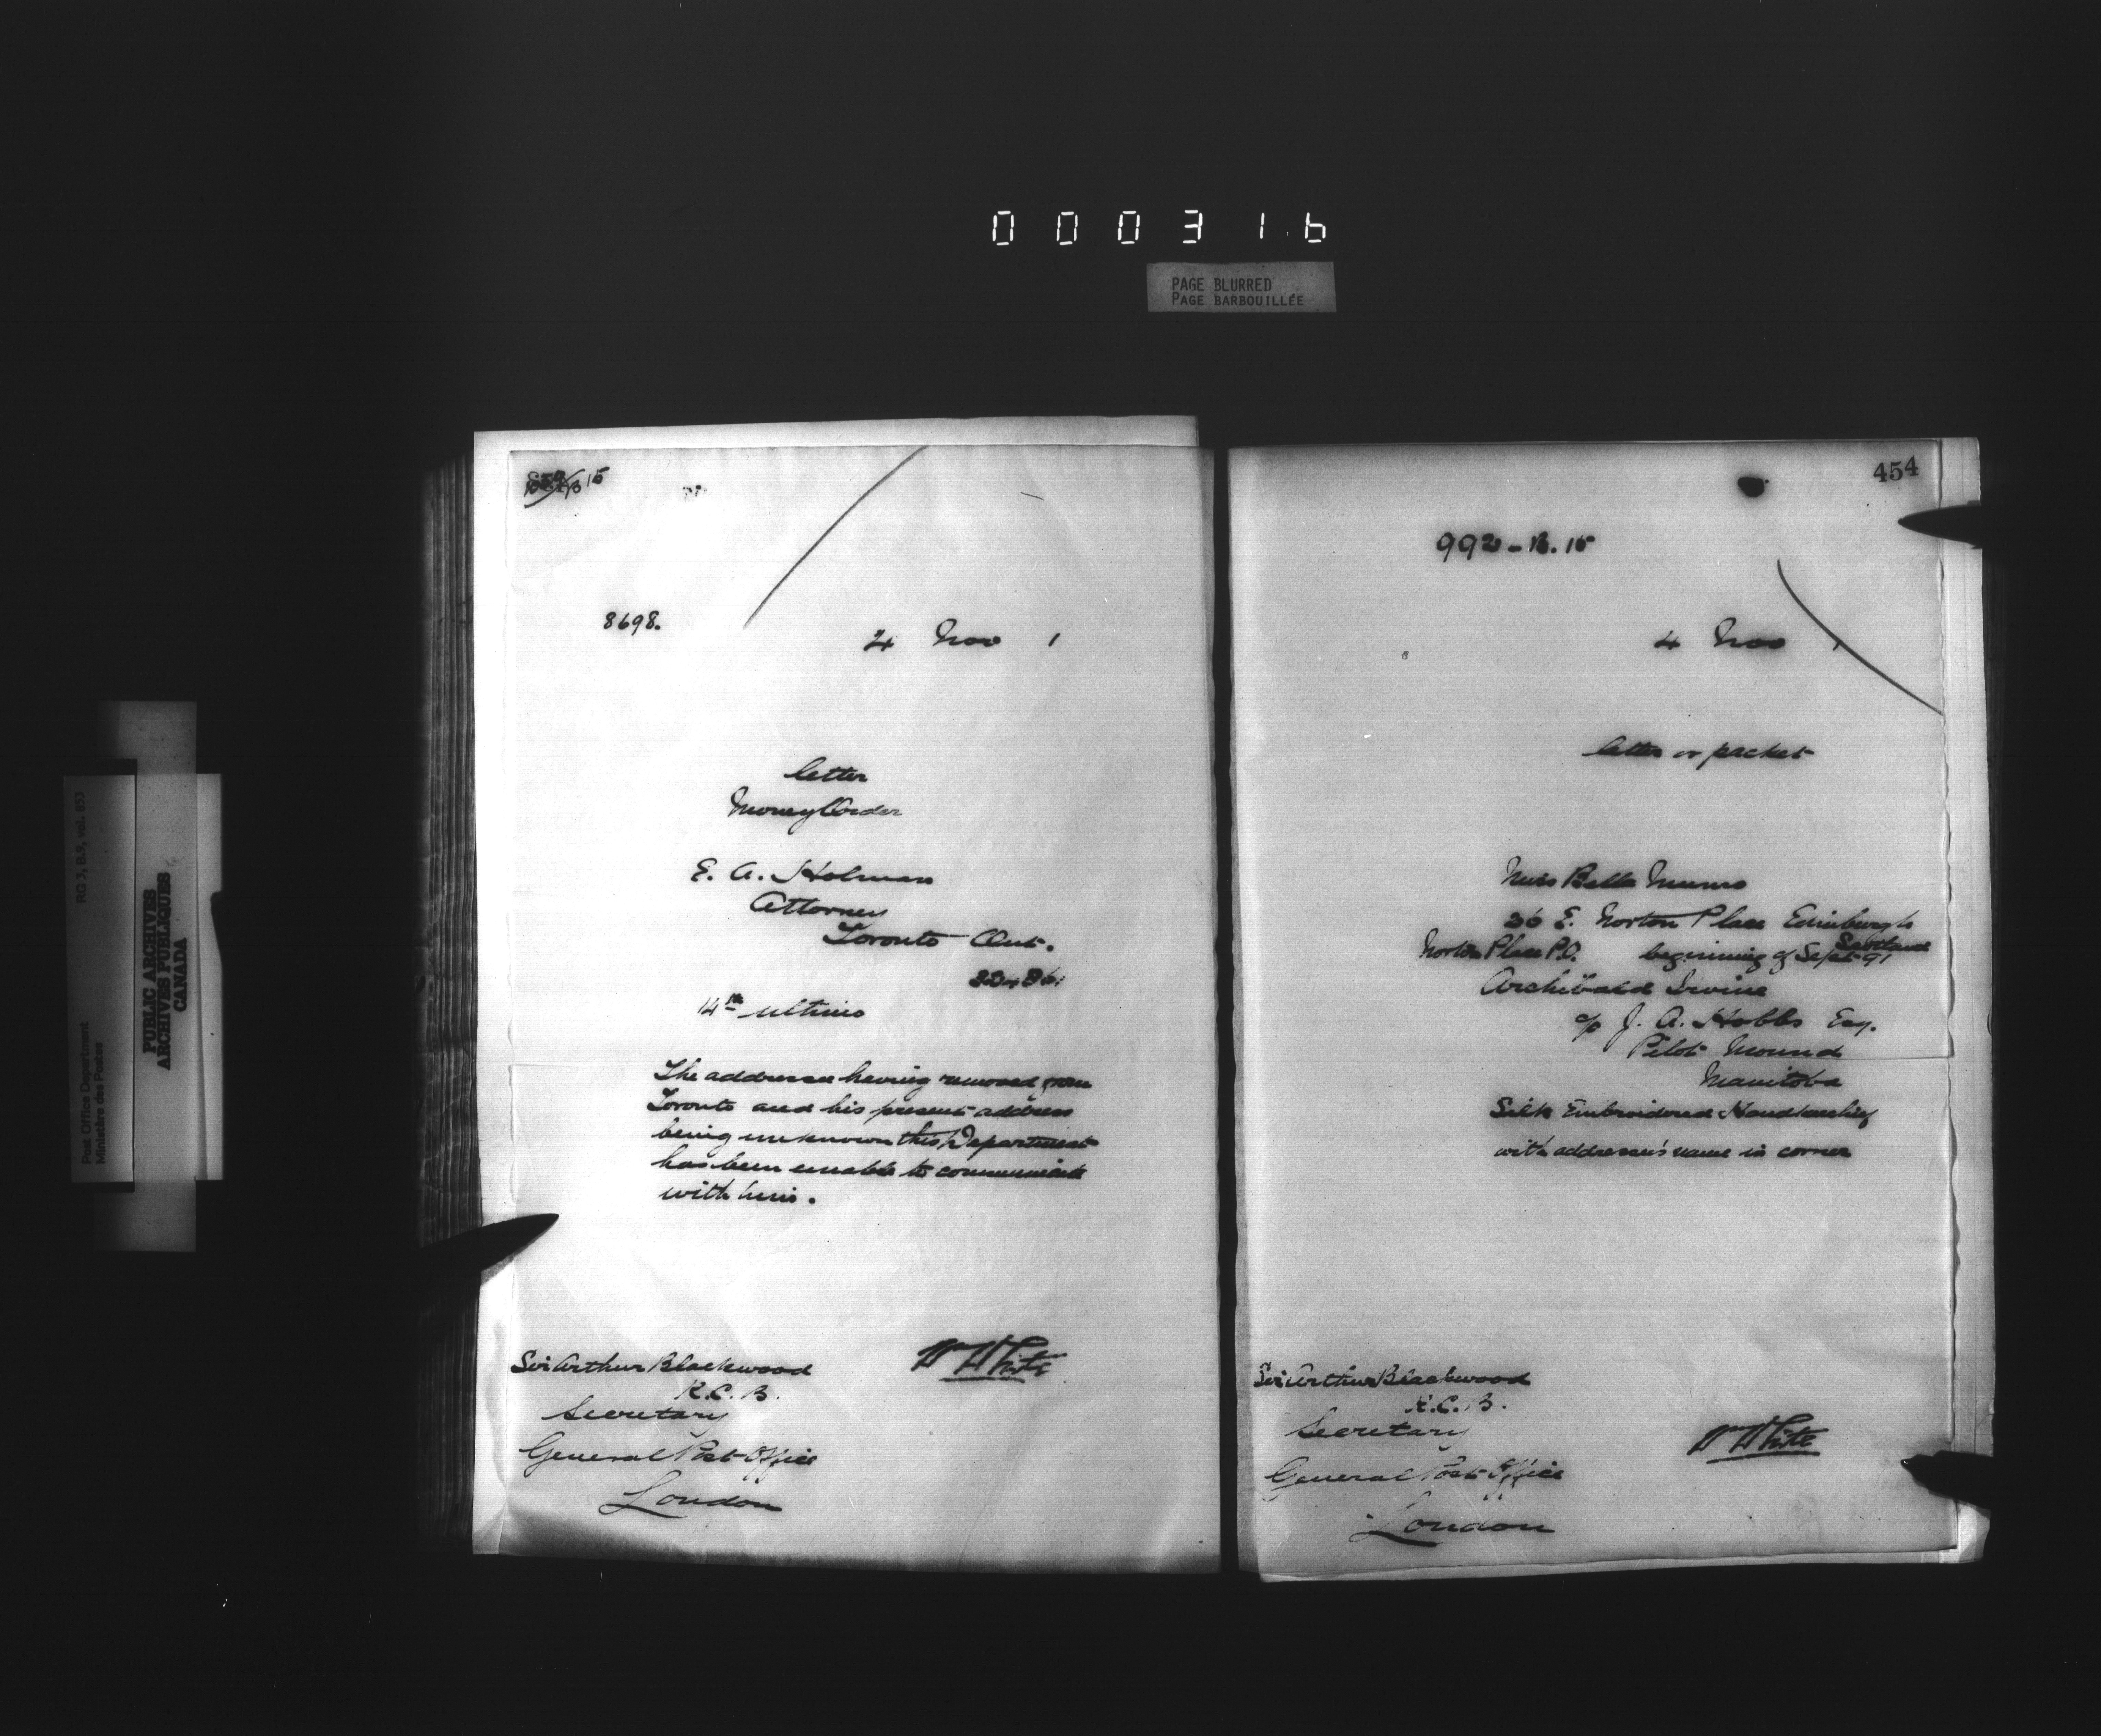 000316
PAGE BLURRED
PAGE BARBOUILLÉE
RG 3, B.3, vol. 853
Post Office Department
Ministère des Postes
PUBLIC ARCHIVES
ARCHIVES PUBLIQUES
CANADA
15
8698.
4 Nov 1
letter
Money Order
E. A. Holman
Attorney
Toronto Ont.
14th ultimo
The addressee having removed from
Toronto and his present address
being unknown this Department
has been unable to communicate
with him.
Sir Arthur Blackwood
K.C.B.
Secretary
General Post Office
London
W White
454
992-B.15
4 Nov 1
letter or packet
Miss Bella Munro
36 E. Norton Place Edinburgh
Scotland
Norton Place P.O. beginning of Sept 91
Archibald Irvine
c/o J. A. Hobbs Esq.
Pilot Mound
Manitoba
Silk Embroidered Handkerchief
with addressee's name in corner
Sir Arthur Blackwood
K.C.B.
Secretary
General Post Office
London
W White